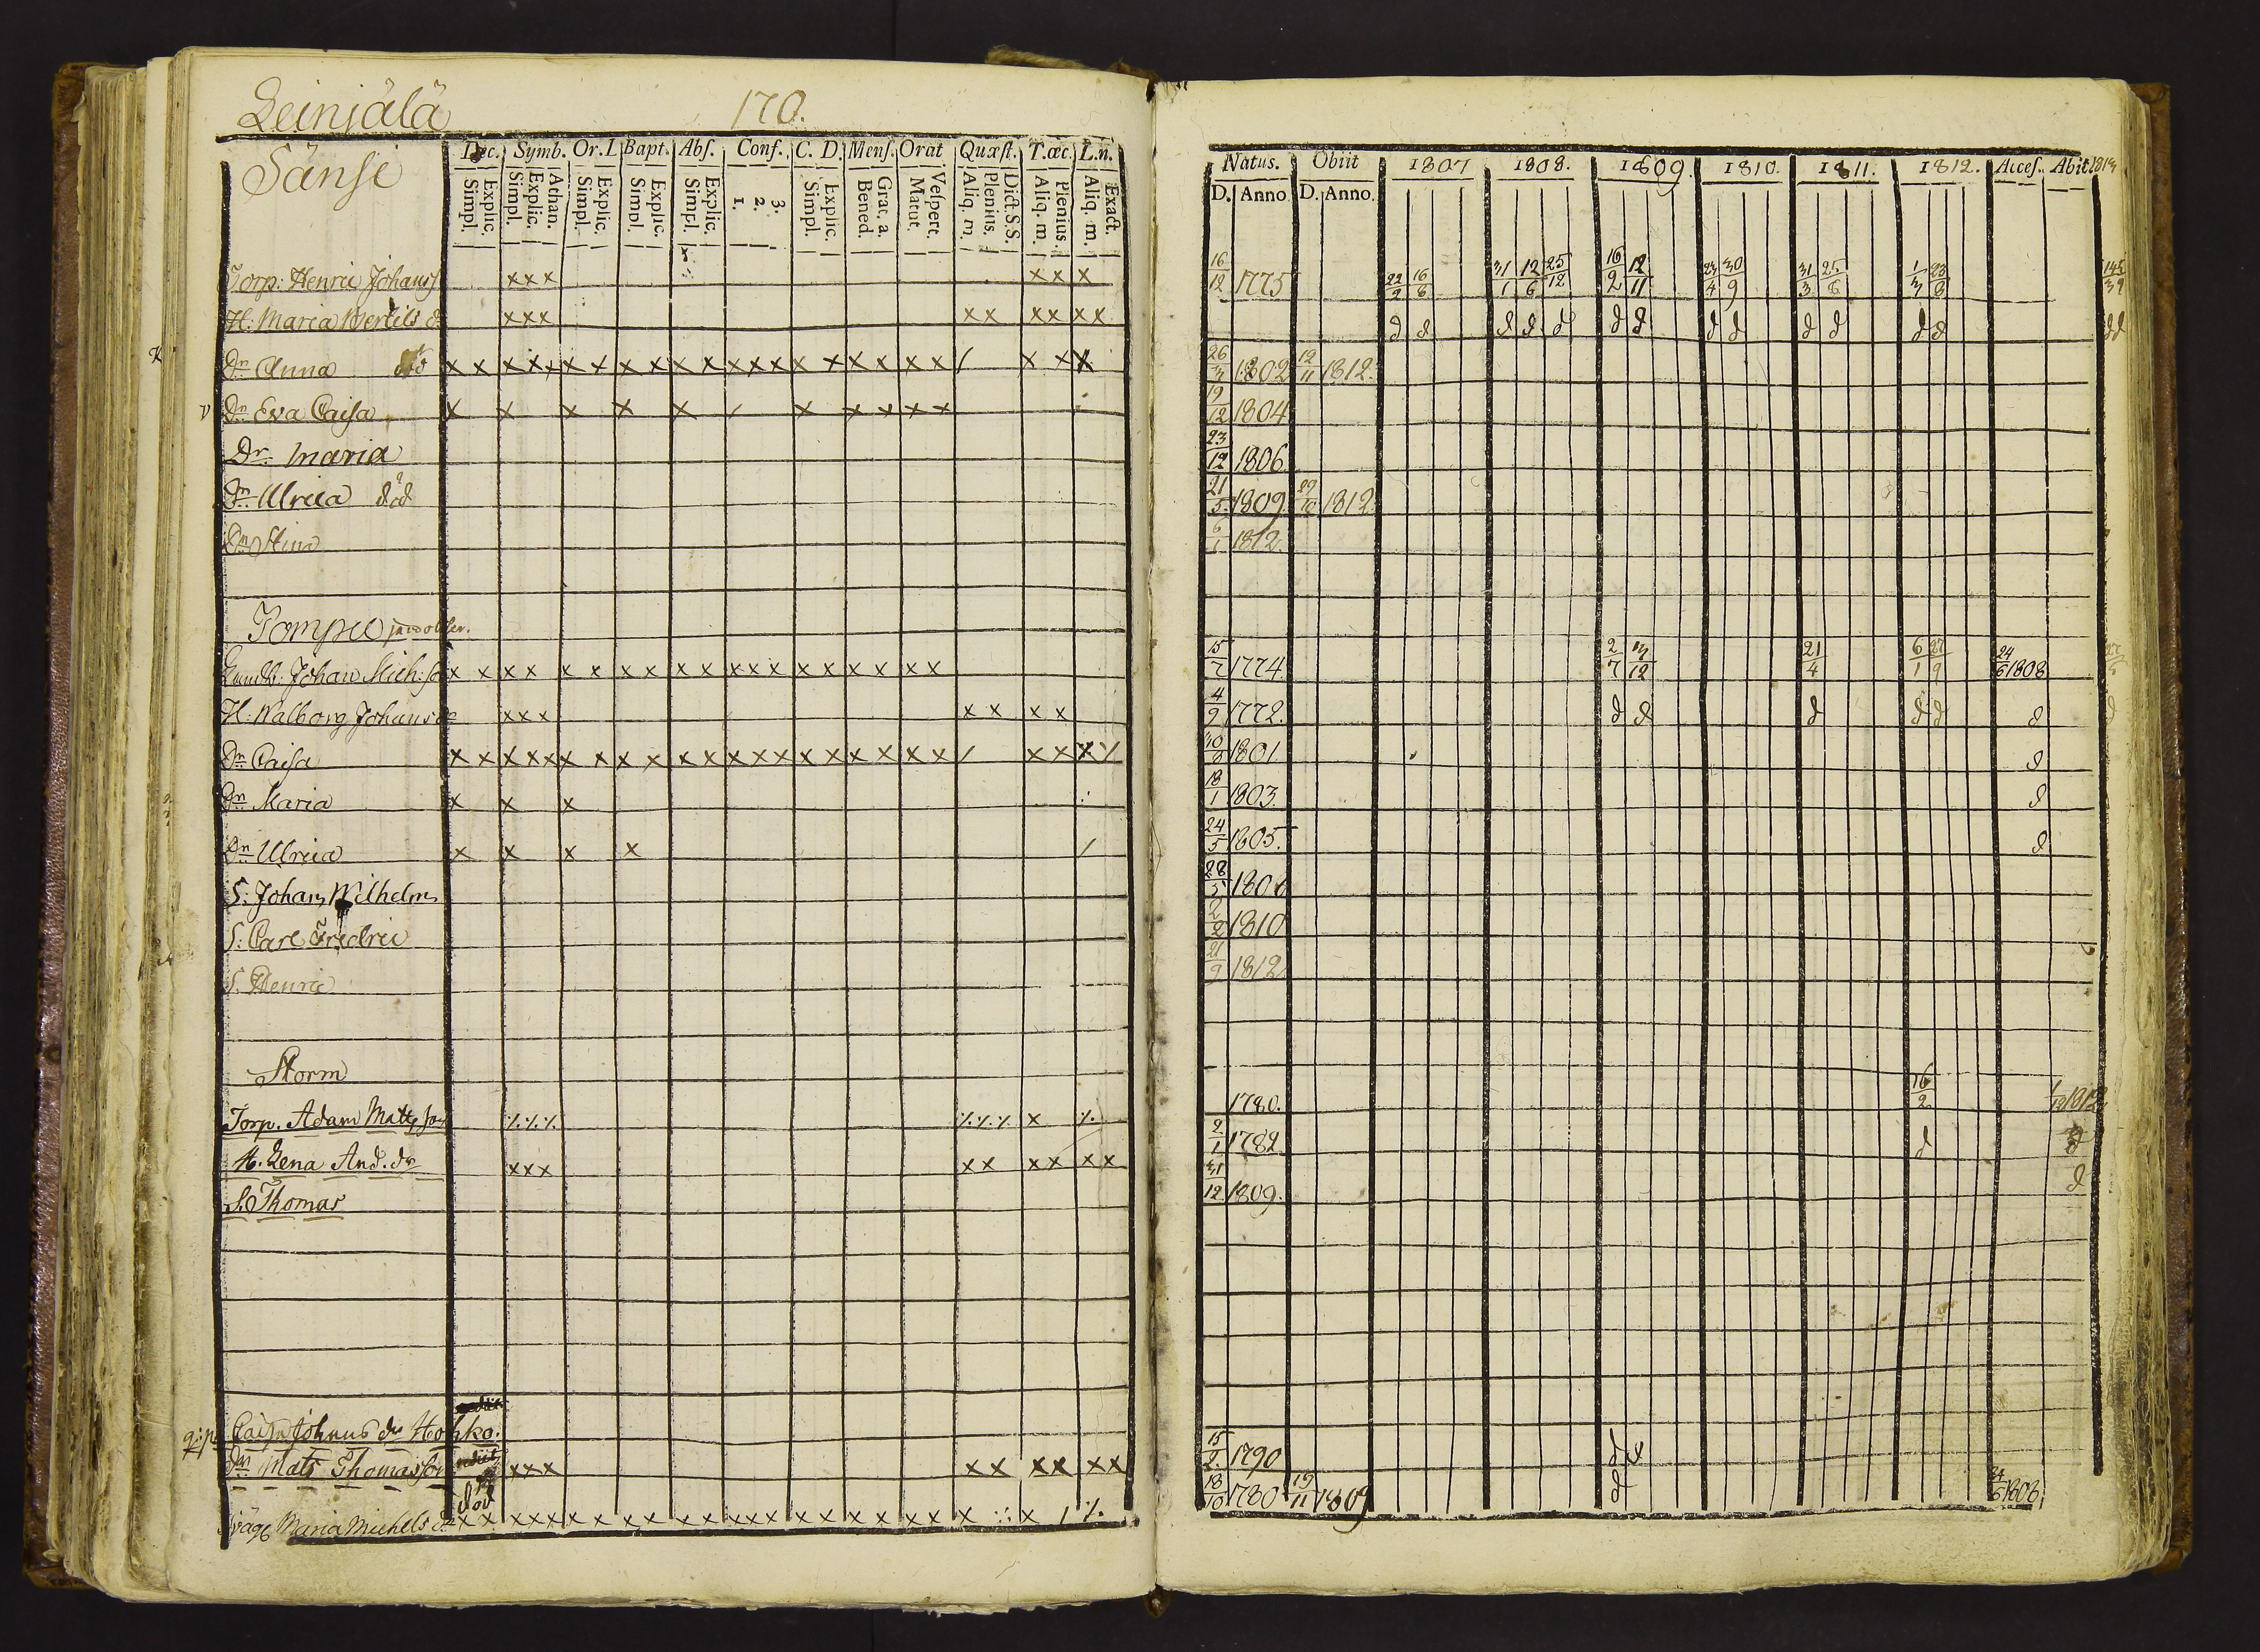 Leinjälä 170.
Sänsi
Dec. Symb. Or. L Bapt. Abs. Conf. C. D. Mens. Orat Quæst. T. æc. L. n.
Explic. Simpl. Athan. Explic. Simpl. Explic. Simpl. Explic. Simpl. Explic. Simpl. 3. 2. 1. Explic. Simpl. Grat. a. Bened. Vespert. Matut. Dict. S.S. Plenius. Aliq. m. Plenius. Aliq. m. Exact. Aliq. m.
Natus. Obiit 1807 1808. 1809. 1810. 1811. 1812. Acces. Abiit 1813
D. Anno D. Anno.
Torp: Henric Johanss xxx xx x 16/12 1775 22/2 16/8 31/1 12/6 25/12 16/2 12/11 23/4 30/9 31/3 25/8
H: Maria Bertils dr xxx xx xx xx d d d d d d d d d d d d d dd
Dr Anna död x x x x x x x x x x x x x x x x x x x x x / x x x 26 1802 12/11 1812.
v Dr Eva Caisa x x x x x / x x x x x 19/12 1804
Dr Maria 23/12 1806
Dr Ulrica död 21/5 1809 29/10 1812
Dr Stina 6/1 1812.
Pompu
Johan Mich: so x x x x x x x x x x x x x x x x x x x 15/7 1774 2/7 21/4 6/1 27/9 24/6 1808
H: Walborg Johans dr xxx x x x x 4/9 1772. d d d d d d d
Dr Caisa x x x x x x x x x x x x x x x x x x x x x / x x x / 30/8 1801 d
Dr Maria x x x 18/1 1803. d
Dr Ulrica x x x x / 24/5 1805. d
S: Johan Wilhelm 28/5
S: Carl Fredric 2/2 1810
S. Henric 21/9 1812
Storm
Torp. Adam Matts son ٪٪٪ ٪٪٪ x ٪ 1780. 16/2
H. Lena And. dr xxx xx xx xx 2/1 1782 d
S. Thomas 31/12 1809. d
Caisa Johans dr Hohko.
Mats Thomasson xxx xx xx xx 15/2 1790 d x
död
Maria Michels dr x x x x x x x x x x x x x x x x x x x x x x x / ٪ 18/10 1780 19/11 1809 d 24/6 1808